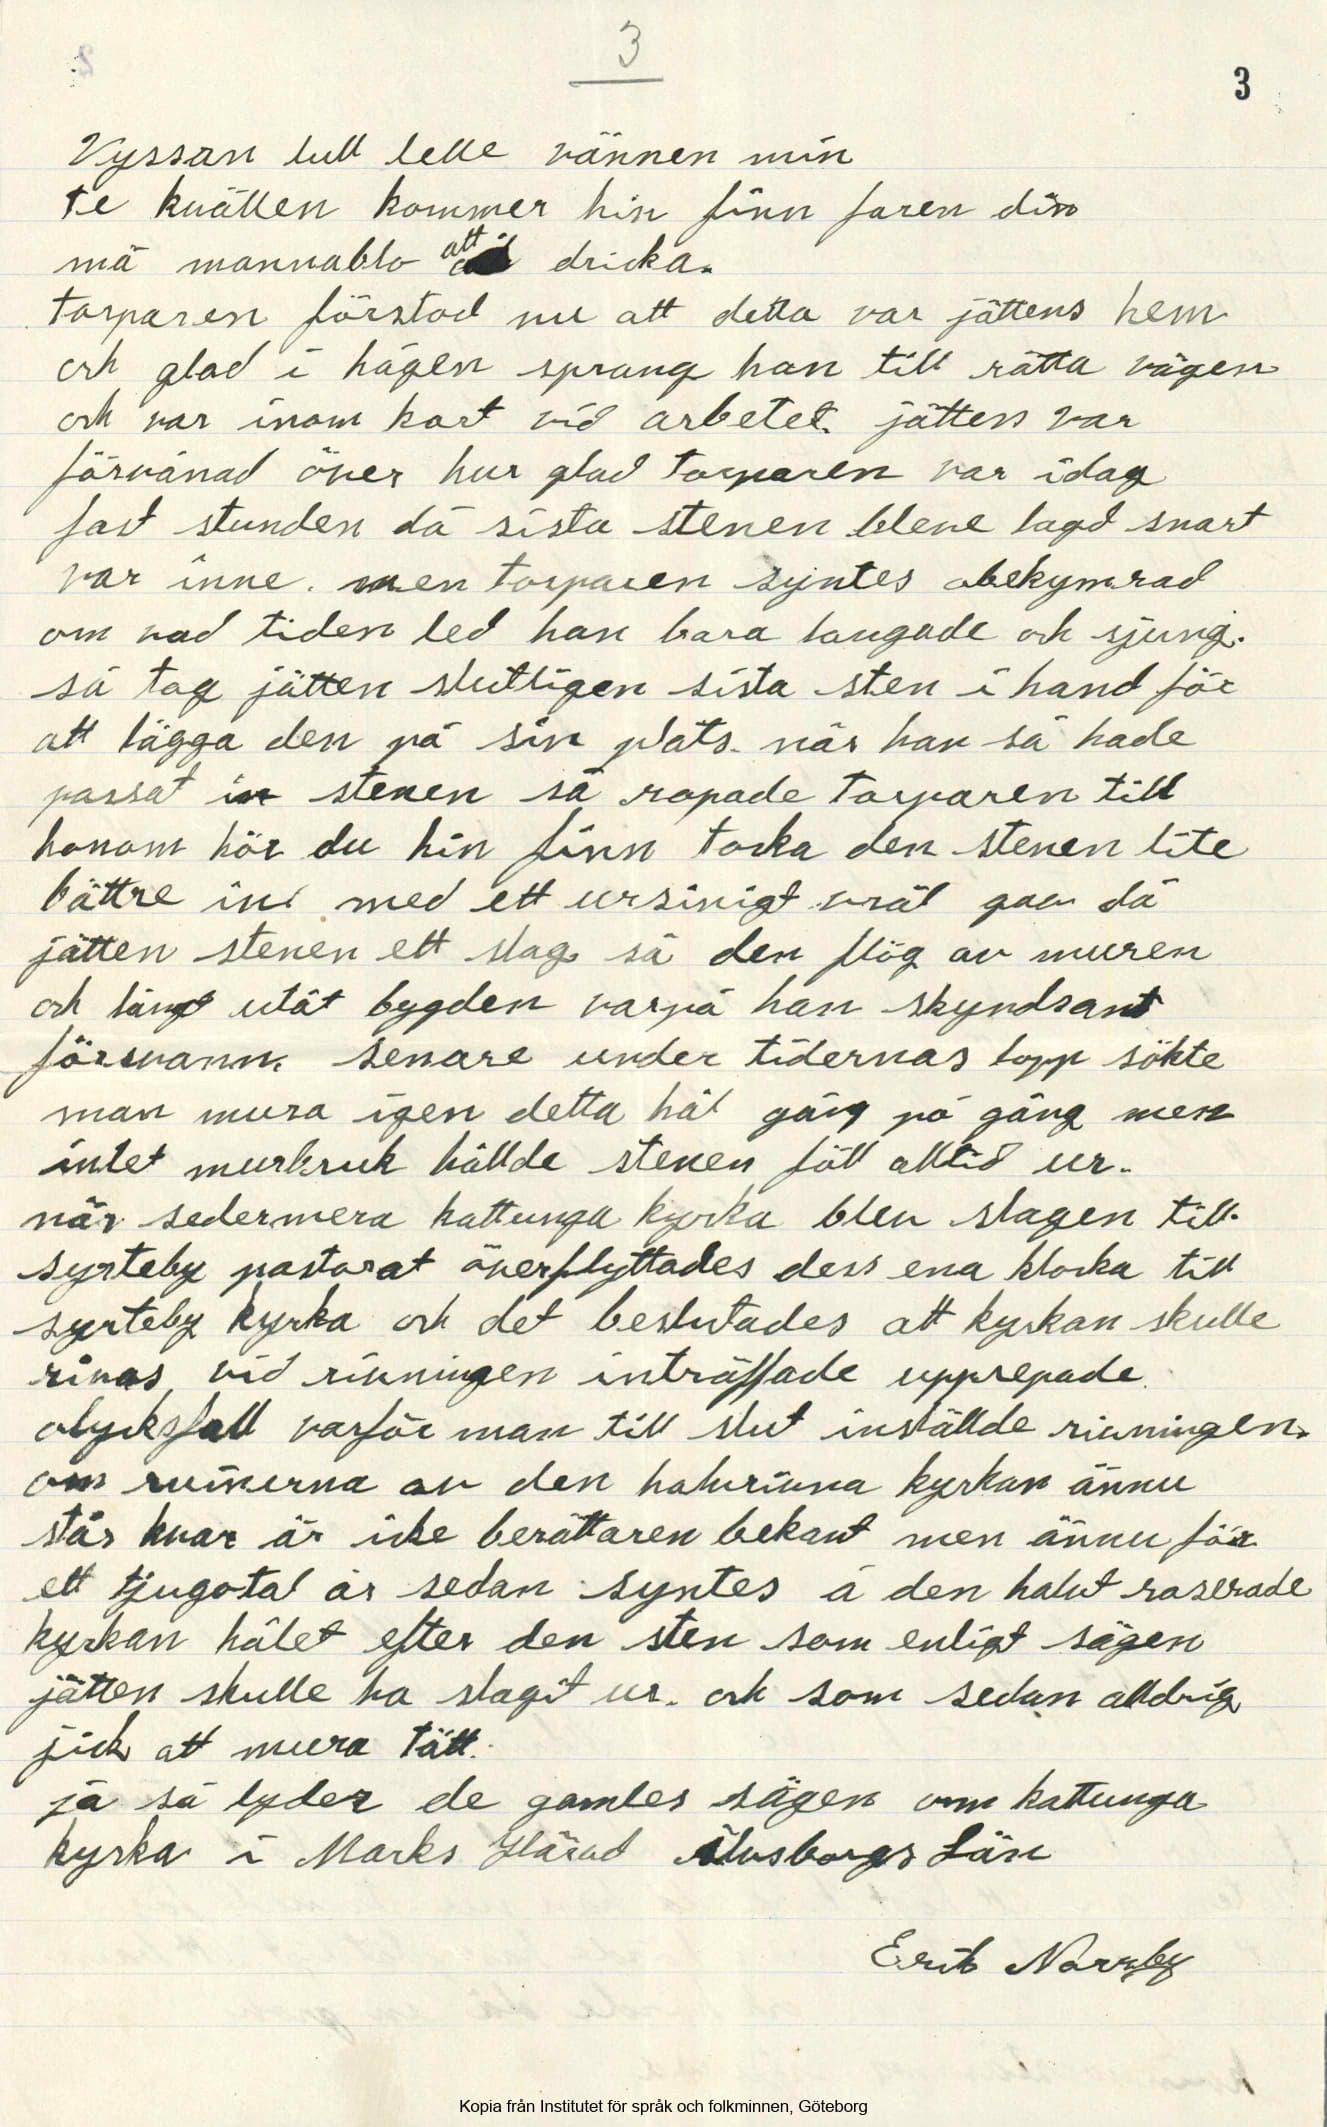 3
3
Vyssan lull lelle vännen min
te kvällen kommer hin finn faren din
mä mannablo att dricka.
torparen förstod nu att detta var jättens hem
och glad i hågen sprang han till rätta vägen
och var inom kort vid arbetet. jätten var
förvånad över hur glad torparen var idag
fast stunden då sista stenen bleve lagd snart
var inne. men torparen syntes obekymrad
om vad tiden led han bara langade och sjung.
så tog jätten slutligen sista sten i hand för
att lägga den på sin plats. når han så hade
passat in stenen så ropade torparen till
honom hör du hin finn tocka den stenen lite
bättre in med ett ursinigt vrål gav då
jätten stenen ett slag så den flög av muren
och långt utåt bygden varpå han skyndsamt
försvann. senare under tidernas lopp sökte
man mura igen detta hål gång på gång men
intet murbruk hållde stenen föll alltid ur.
når sedermera kattunga kyrka blev slagen till
syrteby pastorat överflyttades dess ena klocka till
syrteby kyrka och det beslutades att kyrkan skulle
rivas vid rivningen inträffade upprepade
olycksfall varför man till slut inställde rivningen.
om ruinerna av den halvrivna kyrkan ännu
står kvar är icke berättaren bekant men ännu för
ett tjugotal år sedan syntes å den halvt raserade
kyrkan hålet efter den sten som enligt sägen
jätten skulle ha slagit ur. och som sedan alldrig
jick att mura tätt.
ja så lyder de gamles sägen om kattunga
kyrka i Marks Härad Älvsborgs Län
Erik Norrby
Kopia från Institutet för språk och folkminnen, Göteborg